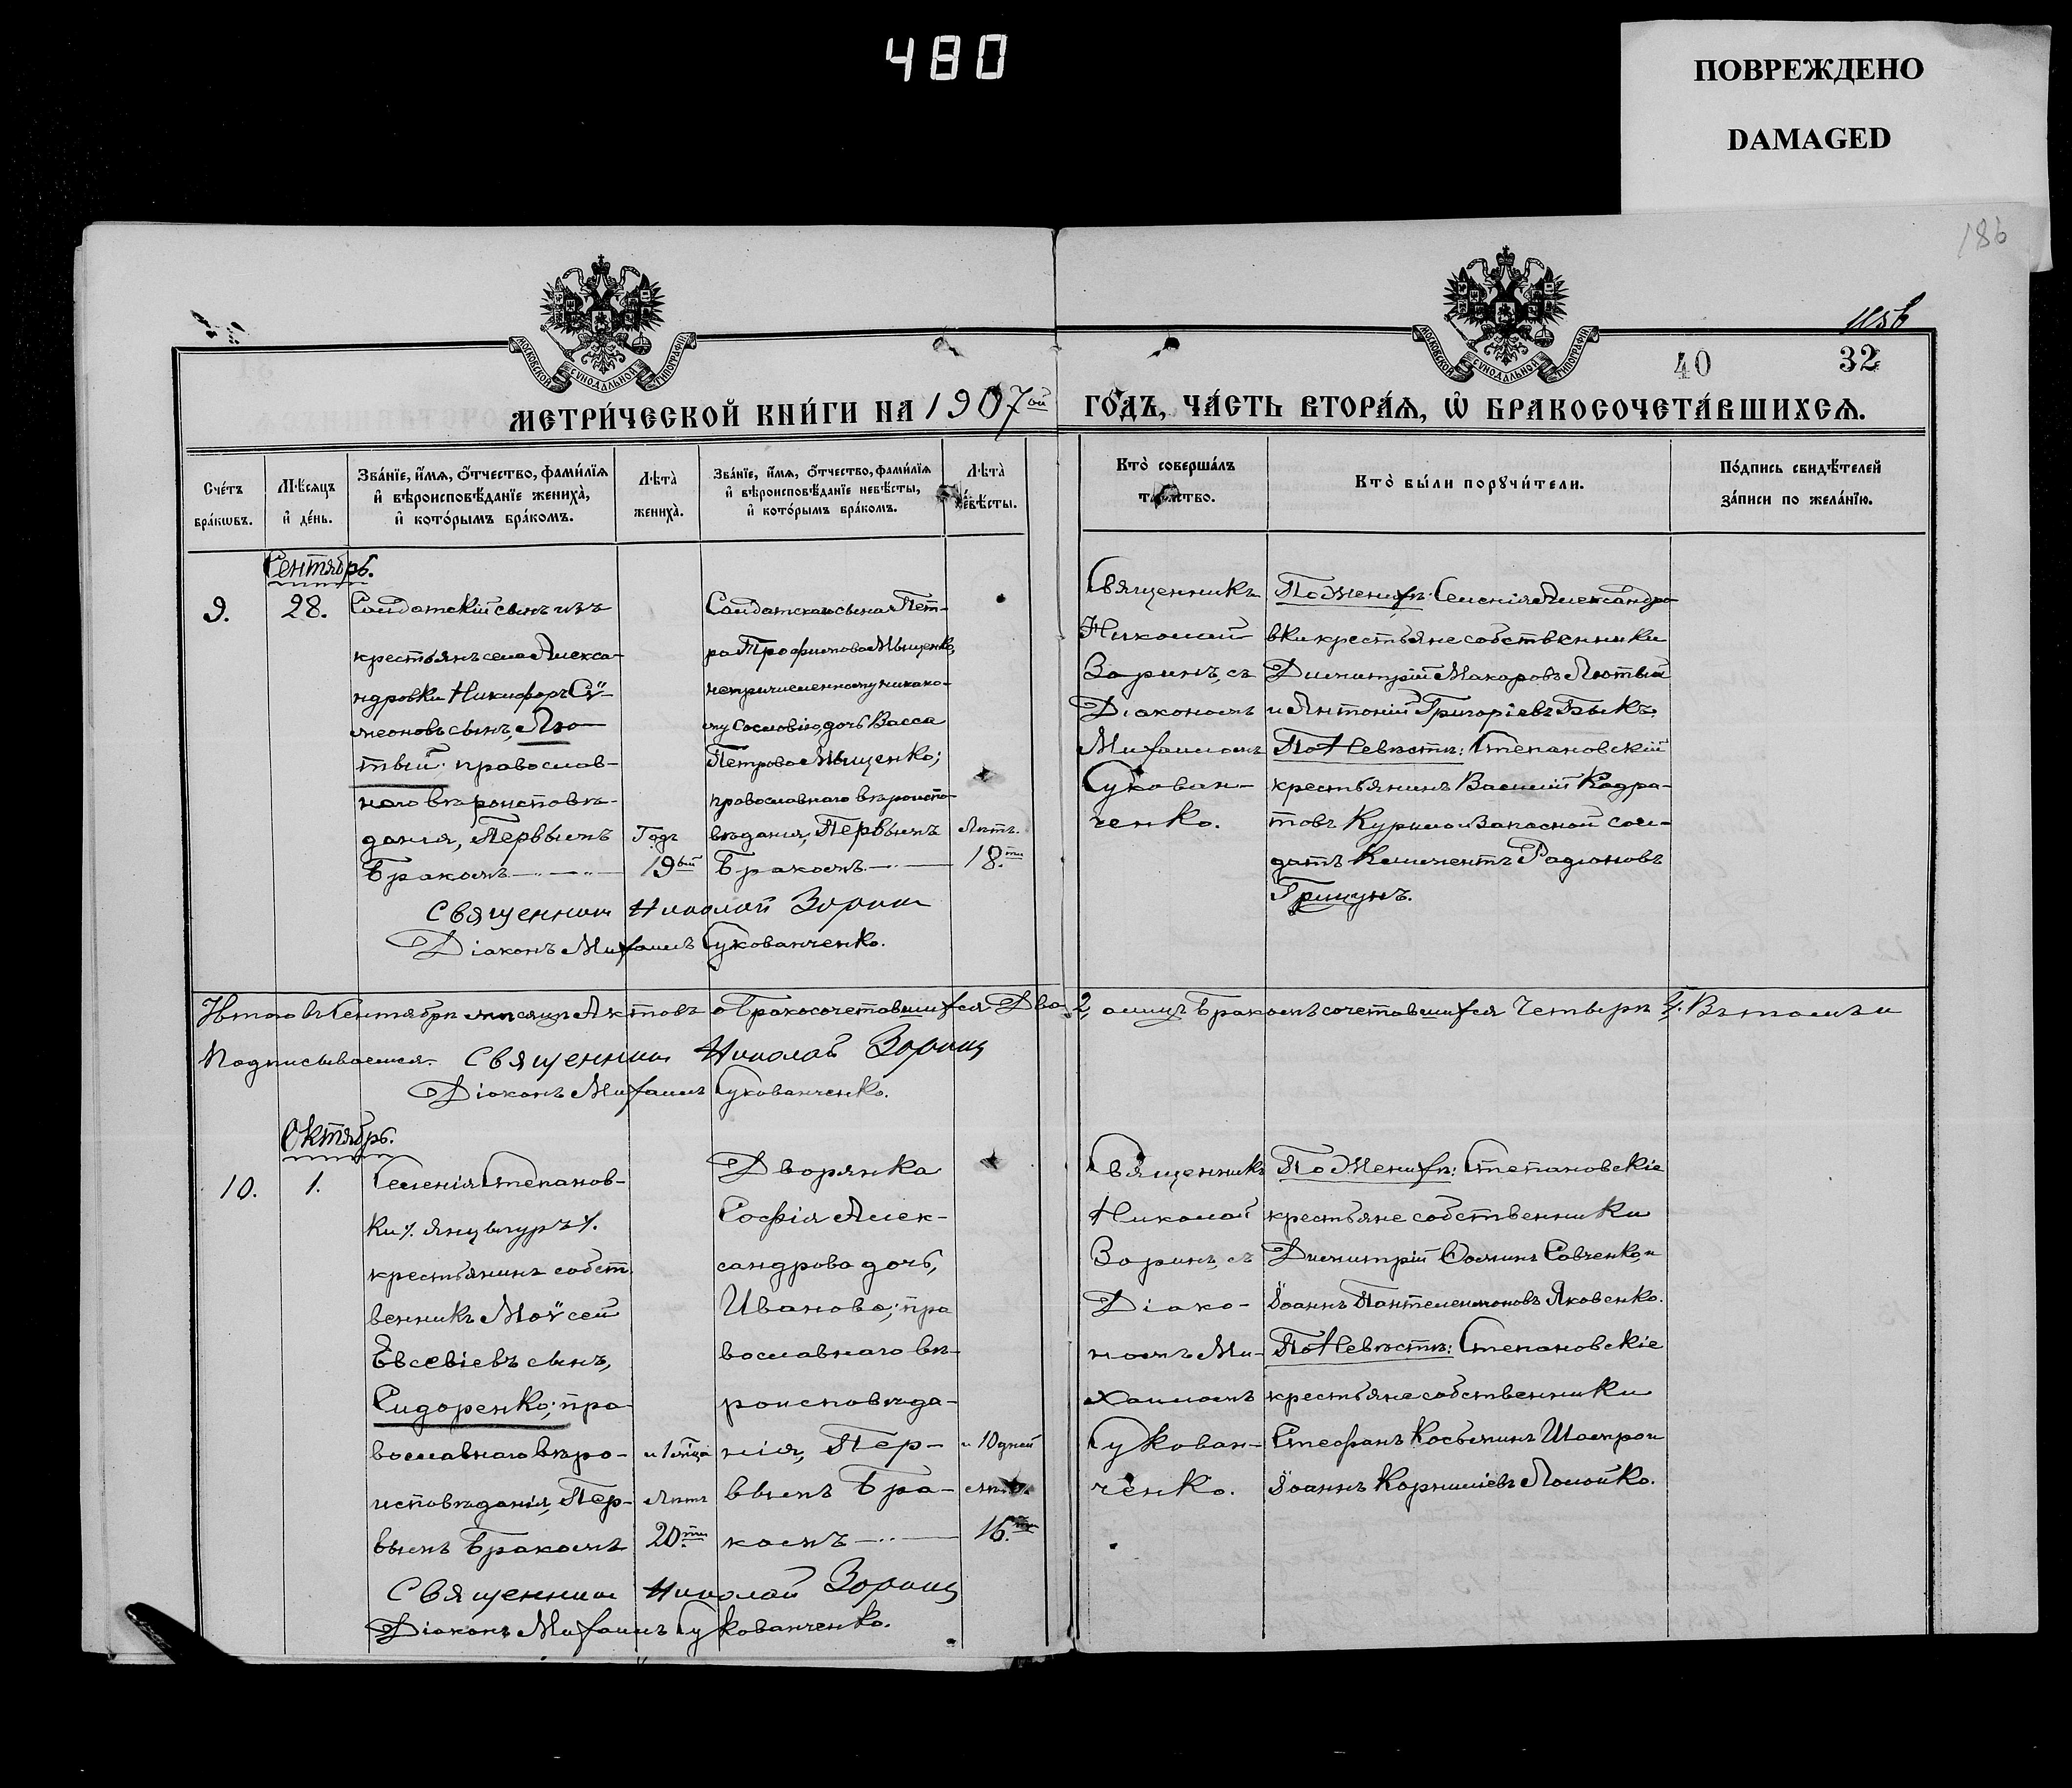 480
ПОВРЕЖДЕНО
DAMAGED
186
40
32
МОСКОВСКОЙ СУНОДАЛЬНОЙ ТИПОГРАФІИ
МОСКОВСКОЙ СУНОДАЛЬНОЙ ТИПОГРАФІИ
МЕТРИ́ЧЕСКОЙ КНИ́ГИ НА 1907ой ГО́ДЪ, ЧА́СТЬ ВТОРА́Ѧ, Ѡ БРАКОСОЧЕТА́ВШИХСѦ.
Сче́тъ бра́кѡвъ.
Мѣсѧцъ и де́нь.
Зва́нїе, и́мѧ, о́тчество, фами́лїѧ и вѣроисповѣ́данїе жениха̀, и кото́рымъ бра́комъ.
Лѣта̀ жениха̀.
Зва́нїе, и́мѧ, о́тчество, фами́лїѧ и вѣроисповѣ́данїе невѣ́сты, и кото́рымъ бра́комъ.
Лѣта̀ невѣ́сты.
Кто̀ соверша́лъ таинство.
Кто̀ бы́ли порꙋчи́тели.
По́дпись свидѣ́телей за́писи по жела́нїю.
Сентябрь.
9.
28.
Солдатскій сынъ изъ
крестьянъ села Алекса-
ндровки Никифоръ Сѵ-
меоновъ сынъ, Лю-
тый; православ-
наго вѣроисповѣ-
данія, Первымъ
Бракомъ
Годъ
19ый
Солдатскаго сына Пет-
ра Трофимова Мищенко,
непричисленному никако-
му сословію, дочь Васса
Петрова Мищенко;
православнаго вѣроиспо-
вѣданія, Первымъ
Бракомъ
Лѣтъ.
18.ти
Священникъ
Николай
Зоринъ, съ
Діакономъ
Михаиломъ
Сукован-
ченко.
По Женихѣ: Селенія Александро-
вки крестьяне собственники
Димитрій Макаровъ Лютый
и Антоній Григоріевъ Быкъ.
По Невѣстѣ: Степановскій
крестьянинъ Василій Кодра-
товъ Курило и Запасной сол-
датъ Климентъ Радіоновъ
Грицунъ.
Священник Николай Зорин
Діаконъ Михаилъ Сукованченко.
Итого въ Сентябрѣ мѣсяцѣ Актовъ о Бракосочетавшихся Два 2, а лицъ Бракомъ сочетавшихся Четыре 4. Въ томъ и
Подписываемся. Священник Николай Зорин
Діаконъ Михаилъ Сукованченко.
Октябрь.
10.
1.
Селенія Степанов-
ки /. Янцылуръ /.
крестьянинъ собст
венникъ Моѵсей
Евсевіевъ сынъ,
Сидоренко; пра-
вославнаго вѣро-
исповѣданія, Пер-
вымъ Бракомъ
и 1 мѣсца
Лѣтъ
20ти
Дворянка
Софія Алек-
сандрова дочь,
Иванова; пра
вославнаго вѣ-
роисповѣда-
нія, Пер-
вымъ Бра-
комъ
и 10 дней
16.ти
Священникъ
Николай
Зоринъ, съ
Діако-
номъ Ми-
хаиломъ
Сукован-
ченко.
По Женихѣ: Степановскіе
крестьяне собственники
Димитрій Ѳоминъ Савченко, и
Іоаннъ Пантелеимоновъ Яковенко.
По Невѣстѣ: Степановскіе
крестьяне собственники
Стефанъ Косьминъ
Іоаннъ Корниліевъ Ломойко.
Священник Николай Зорин
Діаконъ Михаилъ Сукованченко.